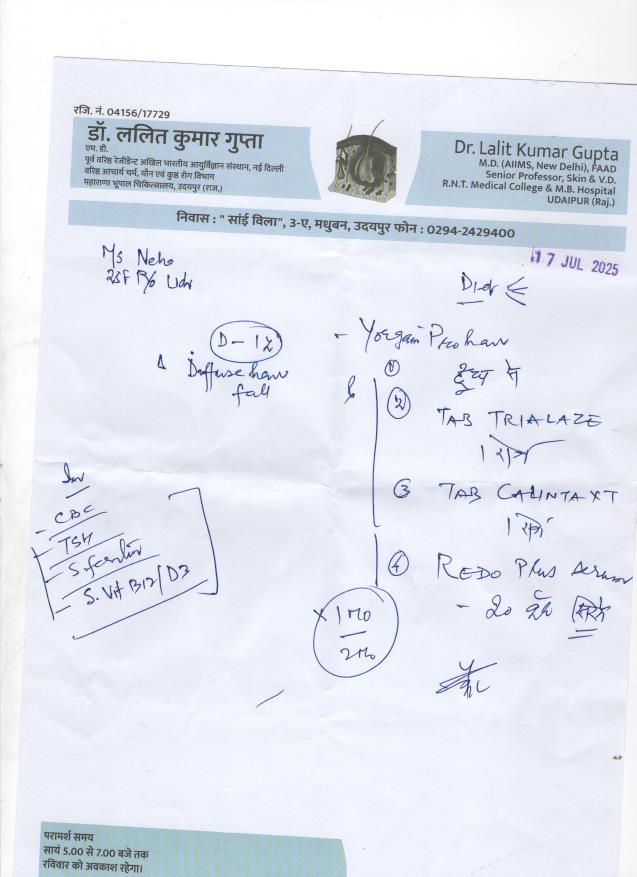 रजि. नं. 04156/17729
डॉ. ललित कुमार गुप्ता
एम. डी.
पूर्व वरिष्ठ रेजीडेन्ट अखिल भारतीय आयुर्विज्ञान संस्थान, नई दिल्ली
वरिष्ठ आचार्य चर्म, यौन एवं कुष्ठ रोग विभाग
महाराणा भूपाल चिकित्सालय, उदयपुर (राज.)
Dr. Lalit Kumar Gupta
M.D. (AIIMS, New Delhi), FAAD
Senior Professor, Skin & V.D.
R.N.T. Medical College & M.B. Hospital
UDAIPUR (Raj.)
निवास : " सांई विला", 3-ए, मधुबन, उदयपुर फोन : 0294-2429400
17 JUL 2025
Ms Neha
25F R/o Udr
D-12
Diffuse hair
fall
Inv
- CBC
- TSH
- S. ferritin
- S. Vit B12/D3
①
दूध से
② TAB TRIALAZE
1 रात्रि
③ TAB CALINTA XT
1
④ REDO Plus serum
- 20
x 1 mo
2 mo
परामर्श समय
सायं 5.00 से 7.00 बजे तक
रविवार को अवकाश रहेगा।